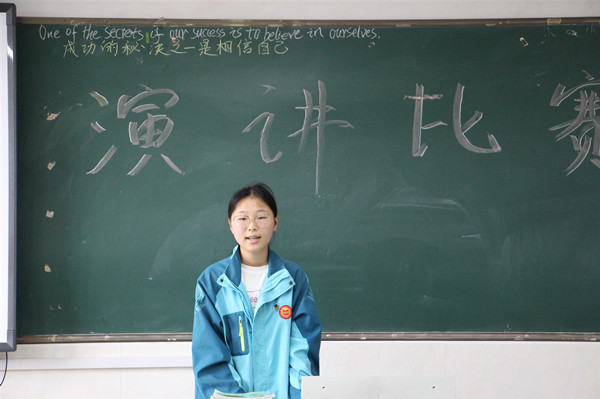 One of the secrets of our success is to believe in ourselves.
成功的秘诀之一是相信自己
演讲比赛